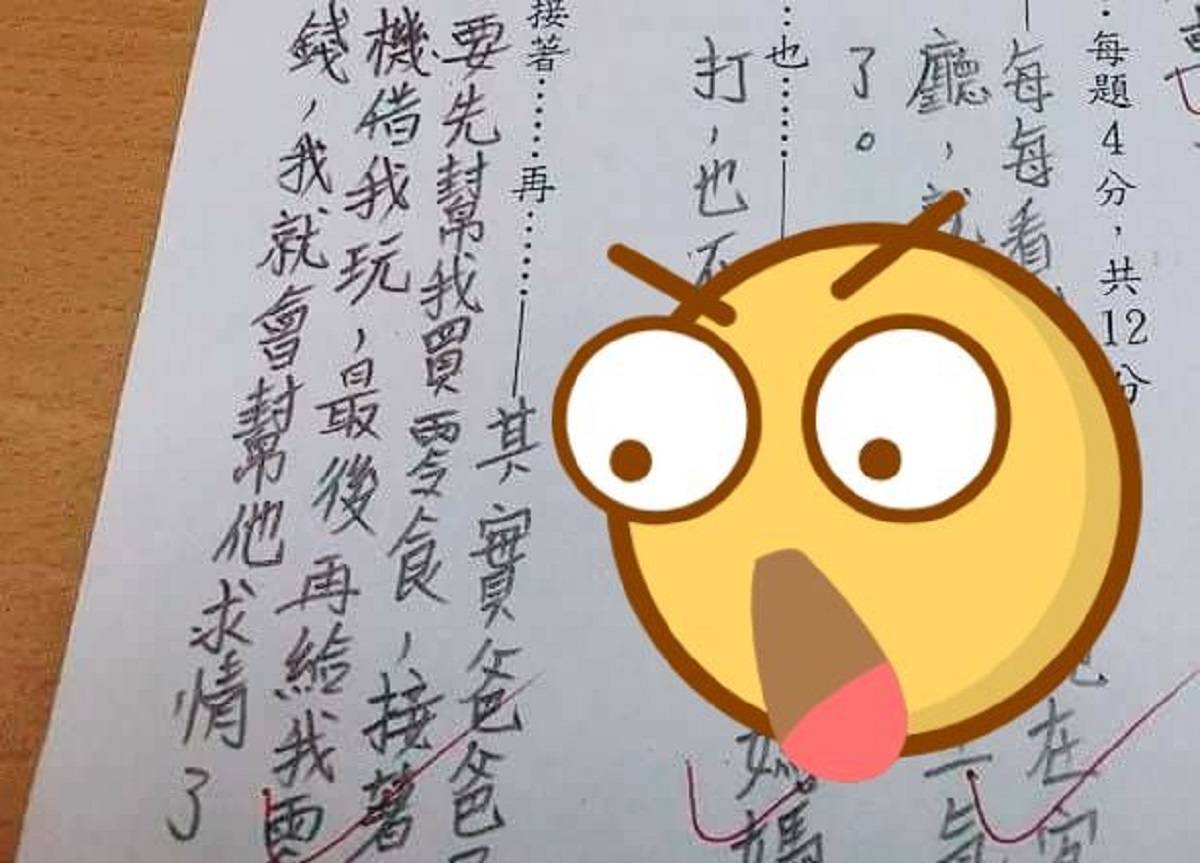 …每題4分，共12分
每每看在客
廳，就
了。
…也……媽媽
打，也不
接著……再……其實爸爸
要先幫我買零食，接著
機借我玩，最後再給我零
錢，我就會幫他求情了